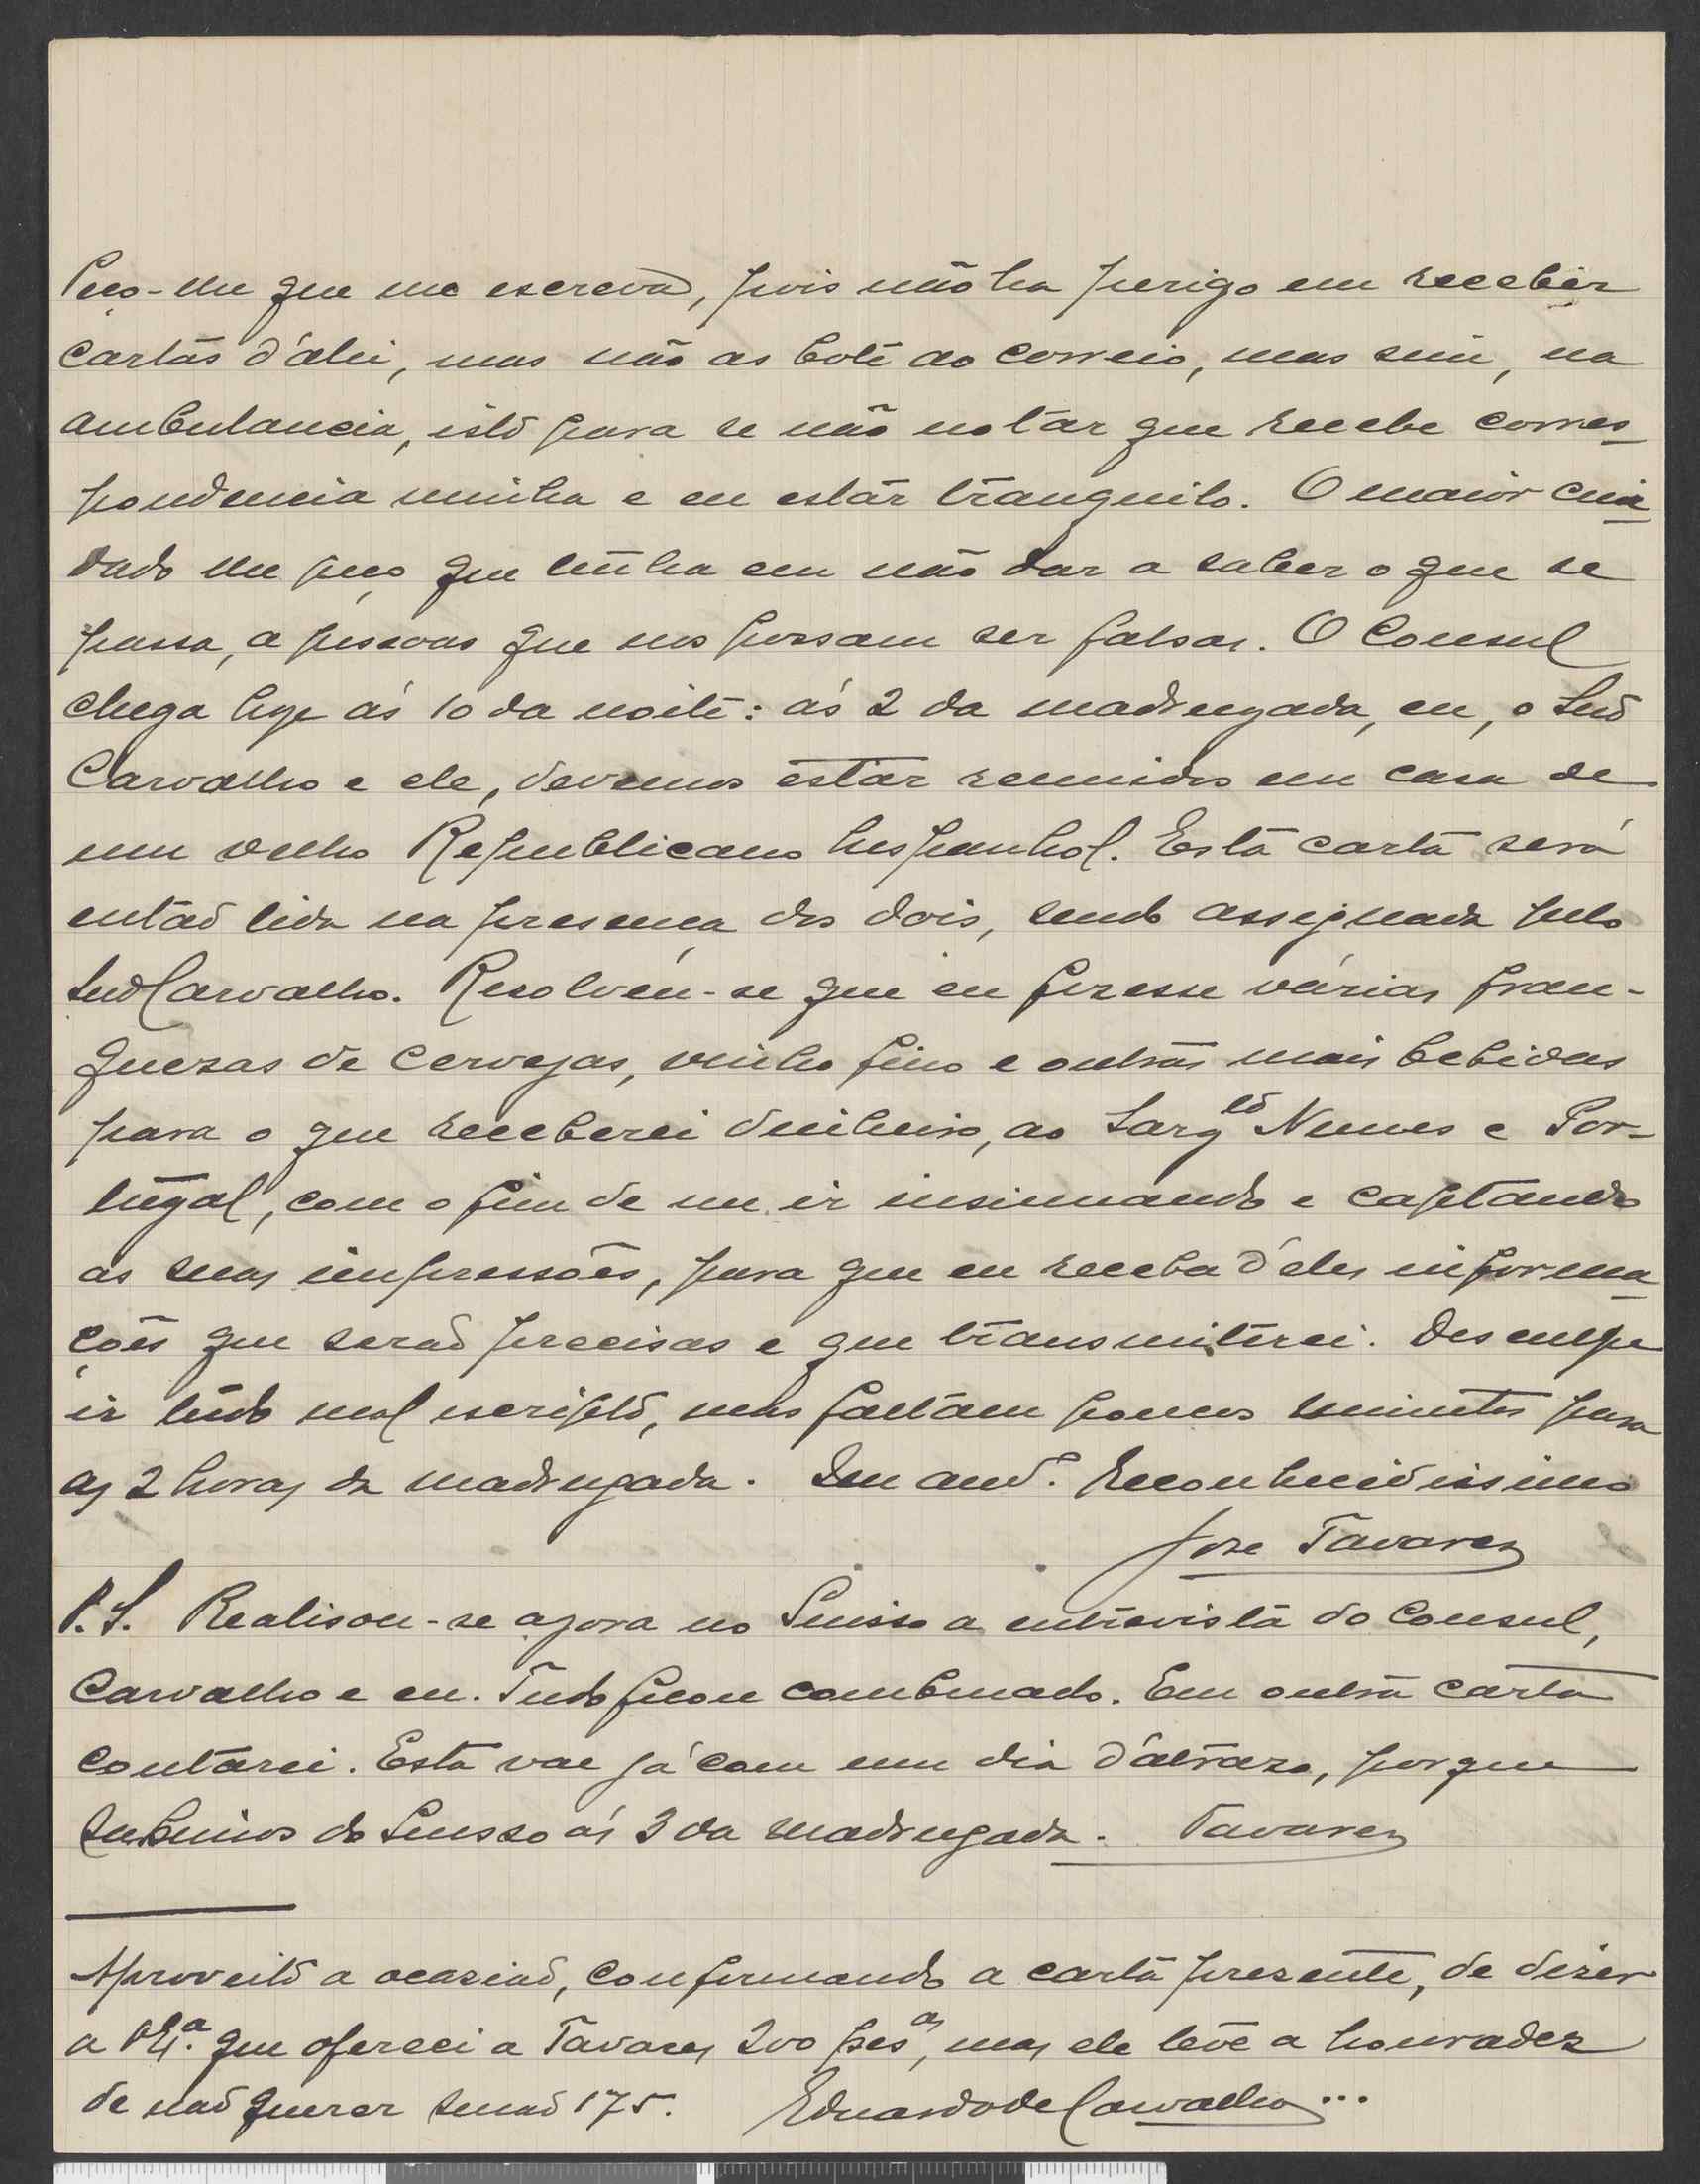 Peço-lhe que me escreva, pois não ha perigo em receber
cartas d'alli, mas não as bote ao correio, mas sim, na
ambulancia, isto para se não notar que recebe corres-
pondencia minha e eu estár tranquilo. O maior cui-
dado lhe peço que tenha em não dar a saber o que se
passa, a pessoas que nos possam ser falsas. O Consul
chega hoje ás 10 da noite: ás 2 da madrugada, eu, o
Carvalho e ele, devemos estár reunidos em casa de
um velho Republicano hespanhol. Esta carta será
então lida na presença dos dois, sendo assignada pelo
Carvalho. Resolveu-se que eu fizesse várias fran-
quezas de cervejas, vinho fino e outras mais bebidas
para o que receberei dinheiro, ao Sarg.to Nunes e Por-
tugal, com o fim de me ir insinuando e captando
as suas impressões, para que eu receba d'eles informa-
ções que serão precisas e que transmitirei. Desculpe
ir tudo mal escripto, mas faltam poucos minutos para
as 2 horas da madrugada. Seu am.o Reconhecidissimo
José Tavares
P.S. Realisou-se agora no Suisso a entrevista do Consul,
Carvalho e eu. Tudo ficou combinado. Em outra carta
contarei. Esta vae já com um dia d'atrazo, porque
sahimos do Suisso ás 3 da madrugada. Tavares
Aproveito a ocasião, confirmando a carta presente, de dizer
a V.Ex.a que ofereci a Tavares 200 pes.as, mas ele teve a honradez
de não querer senão 175. Eduardo de Carvalho...